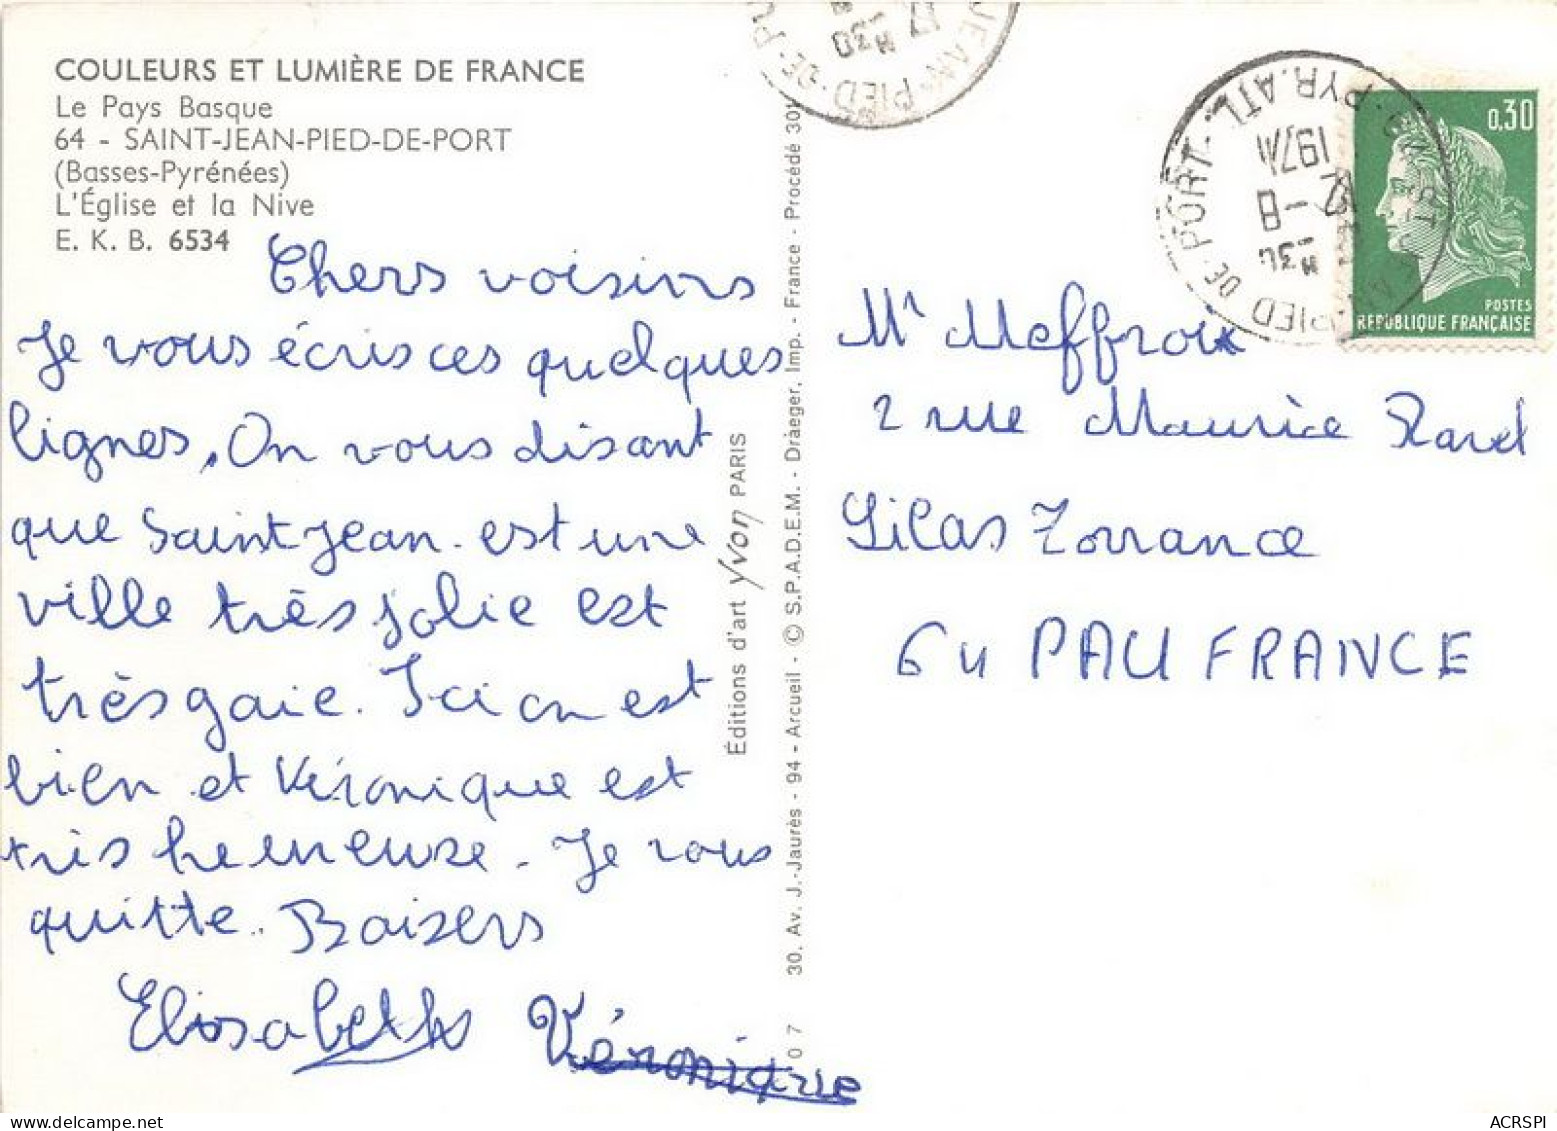 COULEURS ET LUMIÈRE DE FRANCE
Le Pays Basque
64 - SAINT-JEAN-PIED-DE-PORT
(Basses-Pyrénées)
L'Église et la Nive
E. K. B. 6534
Chers voisins
Je vous écris ces quelques
lignes. On vous disant
que Saint Jean est une
ville très jolie est
très gaie. Ici on est
bien et Véronique est
très heureuse. Je vous
quitte. Baisers
Elisabeth Véronique
Éditions d'art yvon PARIS
30, Av. J.-Jaurès - 94 - Arcueil - © S.P.A.D.E.M. - Dràeger, Imp. - France - Procédé 301
0 7
JEAN-PIED-DE-PO
17
M30
ST JEAN PIED DE PORT
PYR.ATL.
M30
-8
1971
0,30
POSTES
REPUBLIQUE FRANÇAISE
Mr Meffroix
2 rue Maurice Ravel
Lilas Torrance
64 PAU FRANCE
ACRSPI